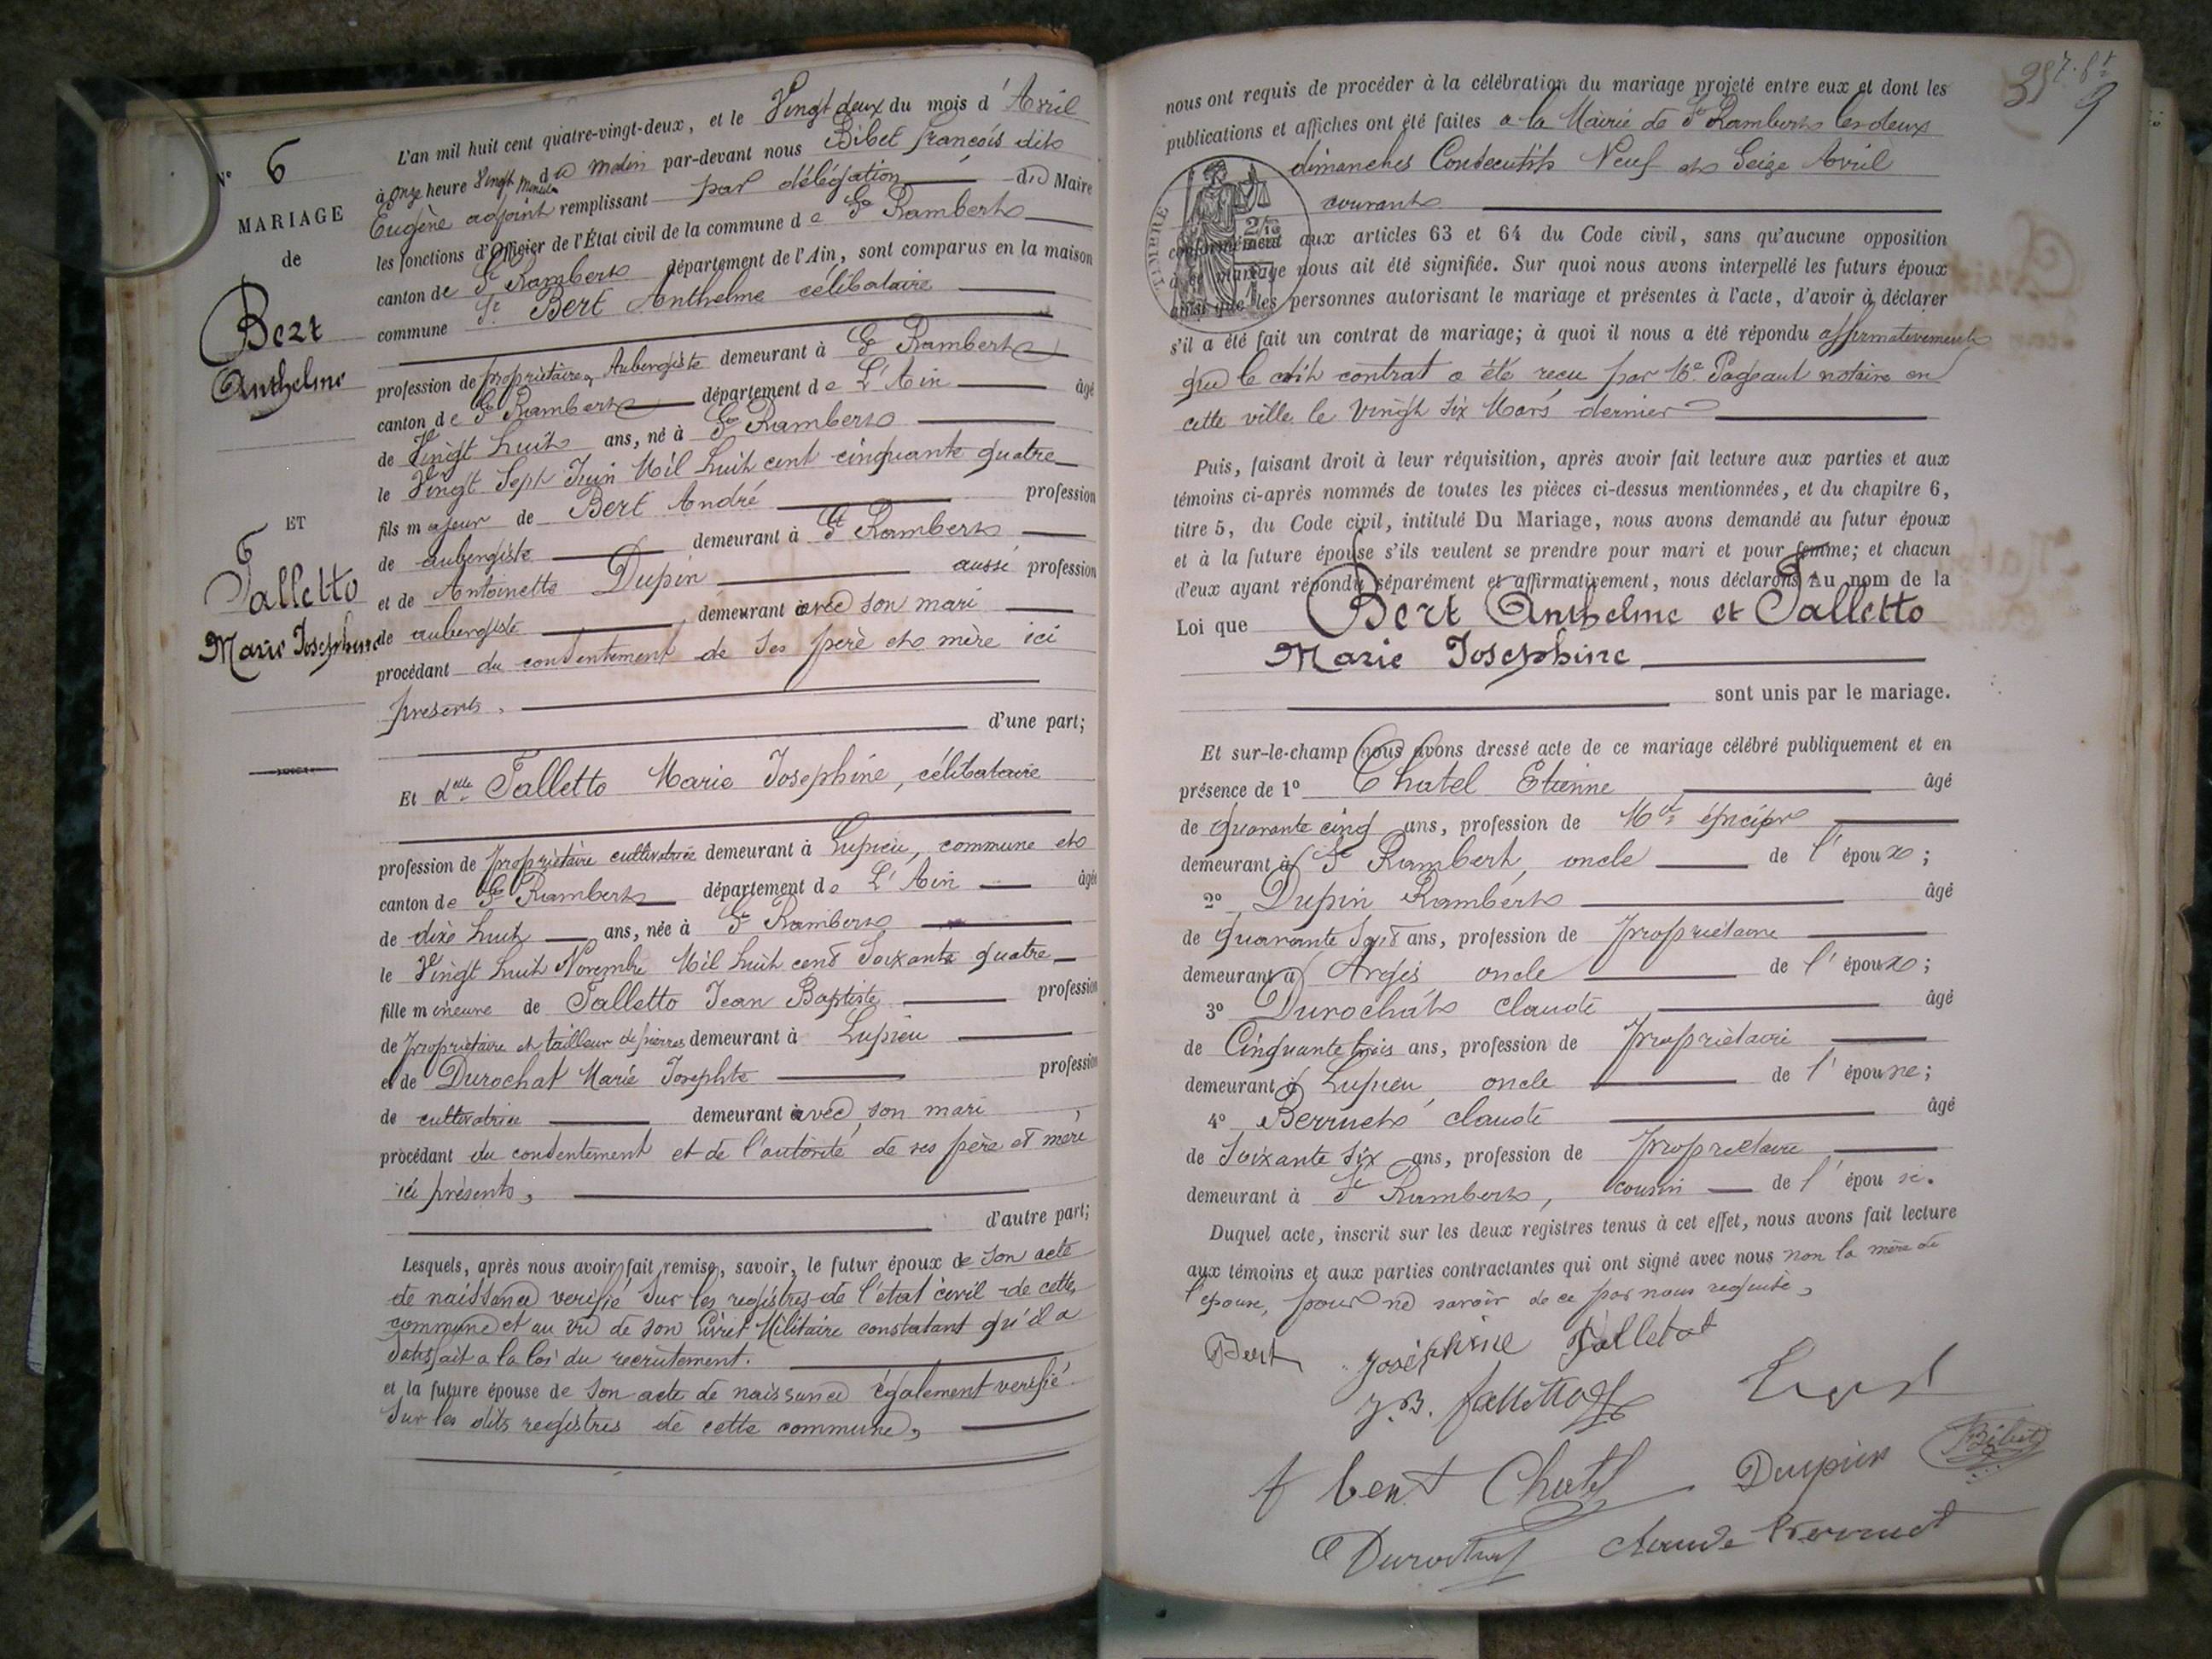 N° 6
MARIAGE
de
Bert
Anthelme
ET
Falletto
Marie Josephine
L'an mil huit cent quatre-vingt-deux, et le Vingt deux du mois d'Avril
à onze heure Vingt minutes du matin par-devant nous Bibet françois dit
Eugène adjoint remplissant par délégation du Maire
les fonctions d'Officier de l'État civil de la commune de St Rambert
canton de St Rambert département de l'Ain, sont comparus en la maison
commune Sr Bert Anthelme célibataire
profession de propriétaire, Aubergiste demeurant à St Rambert
canton de St Rambert département de L'Ain âgé
de Vingt huit ans, né à St Rambert
le Vingt Sept Juin Mil huit cent cinquante quatre
fils majeur de Bert André profession
de aubergiste demeurant à St Rambert
et de Antoinette Dupin aussi profession
de aubergiste demeurant avec son mari
procédant du consentement de ses père et mère ici
présents.
d'une part;
Et Delle Falletto Marie Josephine, célibataire
profession de propriétaire cultivatrice demeurant à Lupieu, commune et
canton de St Rambert département de L'Ain âgée
de dixe huit ans, née à St Rambert
le Vingt huit Novembre Mil huit cent Soixante quatre
fille mineure de Falletto Jean Baptiste profession
de propriétaire et tailleur de pierres demeurant à Lupieu
et de Durochat Marie Josephte profession
de cultivatrice demeurant avec son mari,
procédant du consentement et de l'autorité de ses père et mère
ici présents,
d'autre part;
Lesquels, après nous avoir fait remise, savoir, le futur époux de son acte
de naissance verifié sur les registres de l'état civil de cette
commune et au vu de son livret Militaire constatant qu'il a
satisfait a la loi du recrutement.
et la future épouse de son acte de naissance également verifié
sur les dits registres de cette commune,
9
nous ont requis de procéder à la célébration du mariage projeté entre eux et dont les
publications et affiches ont été faites a la Mairie de St Rambert les deux
dimanches Consecutifs Neuf et Seize Avril
courant
TIMBRE
2/10
conformément aux articles 63 et 64 du Code civil, sans qu'aucune opposition
à ce mariage nous ait été signifiée. Sur quoi nous avons interpellé les futurs époux
ainsi que les personnes autorisant le mariage et présentes à l'acte, d'avoir à déclarer
s'il a été fait un contrat de mariage; à quoi il nous a été répondu affirmativement
que le dit contrat a été reçu par Me Pageaut notaire en
cette ville le Vingt six Mars dernier
Puis, faisant droit à leur réquisition, après avoir fait lecture aux parties et aux
témoins ci-après nommés de toutes les pièces ci-dessus mentionnées, et du chapitre 6,
titre 5, du Code civil, intitulé Du Mariage, nous avons demandé au futur époux
et à la future épouse s'ils veulent se prendre pour mari et pour femme; et chacun
d'eux ayant répondu séparément et affirmativement, nous déclarons Au nom de la
Loi que Bert Anthelme et Falletto
Marie Josephine
sont unis par le mariage.
Et sur-le-champ nous avons dressé acte de ce mariage célébré publiquement et en
présence de 1° Chatel Etienne âgé
de quarante cinq ans, profession de Md épicier
demeurant à St Rambert, oncle de l'époux;
2° Dupin Rambert âgé
de quarante sept ans, profession de propriétaire
demeurant à Argis oncle de l'époux;
3° Durochat Claude âgé
de Cinquante trois ans, profession de propriètaire
demeurant à Lupieu, oncle de l'épouse;
4° Berruet claude âgé
de Soixante six ans, profession de propriétaire
demeurant à St Rambert, cousin de l'épouse.
Duquel acte, inscrit sur les deux registres tenus à cet effet, nous avons fait lecture
aux témoins et aux parties contractantes qui ont signé avec nous non la mère de
l'épouse, pour ne savoir de ce par nous requise,
Bert Joséphine Falletot
J.B. falletto
A bert Chatel Dupin Bibet
C Durochat Claude Berruet